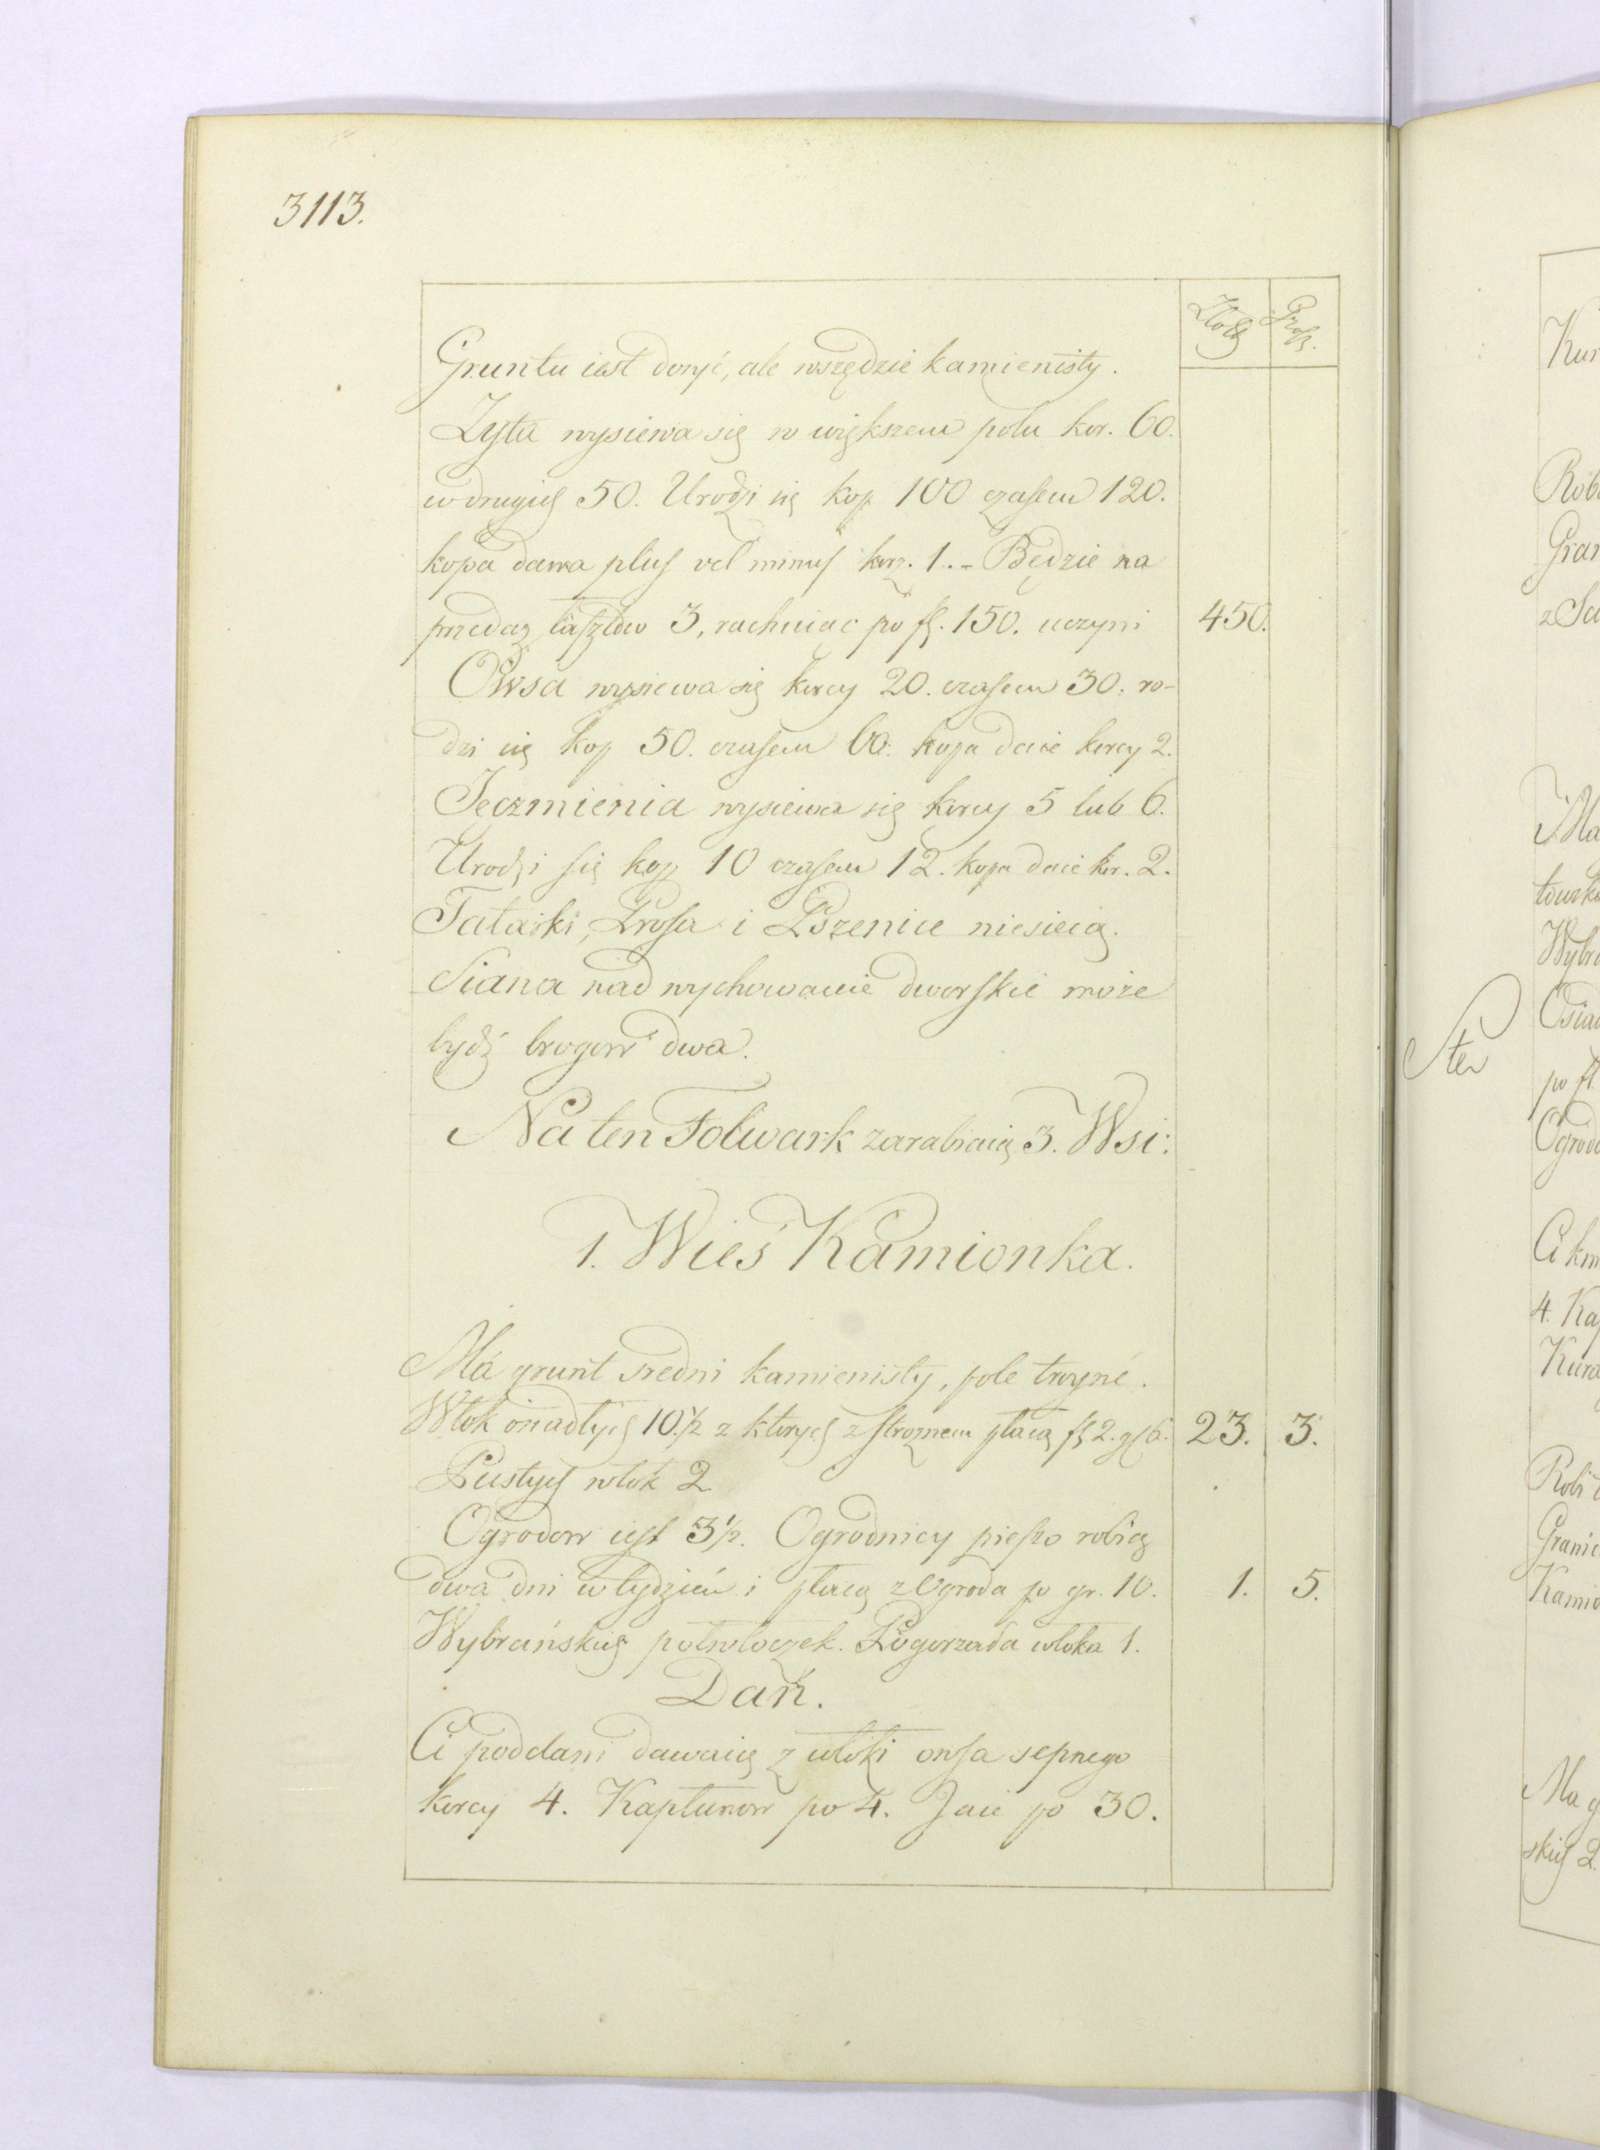 3113.
Złot. Grosz.
Gruntu iest dosyć, ale wszędzie kamienisty.
Żyta wysiewa się w większem polu kor. 60.
w drugich 50. Urodzi się kop 100 czasem 120.
kopa dawa plus vel minus korz. 1. - Będzie na
przedaż łasztow 3, rachuiac po fl. 150. uczyni 450.
Owsa wysiewa się korcy 20. czasem 30. ro-
dzi się kop 50. czasem 60. kopa daie korcy 2.
Jęczmienia wysiewa się korcy 5 lub 6.
Urodzi się kop 10 czasem 12. kopa daie kor. 2.
Tatarki, Prosa i Pszenice niesieią.
Siana nad wychowanie dworskie może
bydź brogow dwa.
Na ten Folwark zarabiaią 3. Wsi:
1. Wieś Kamionka.
Má grunt sredni kamienisty, pole troyné.
Włok osiadłych 10 1/2 z ktorych z stroznem płacą fl 2. gl 6. 23. 3.
Pustych włok 2
Ogrodow iest 3 1/2. Ogrodnicy pieszo robią
dwa dni w tydzień i płacą z Ogroda po gr. 10. 1. 5.
Wybrańskich połwłoczek. Pogorzała włoka 1.
Dań.
Ci poddani dawaią z włoki owsa sepnego
korcy 4. Kapłunow po 4. Jaie po 30.